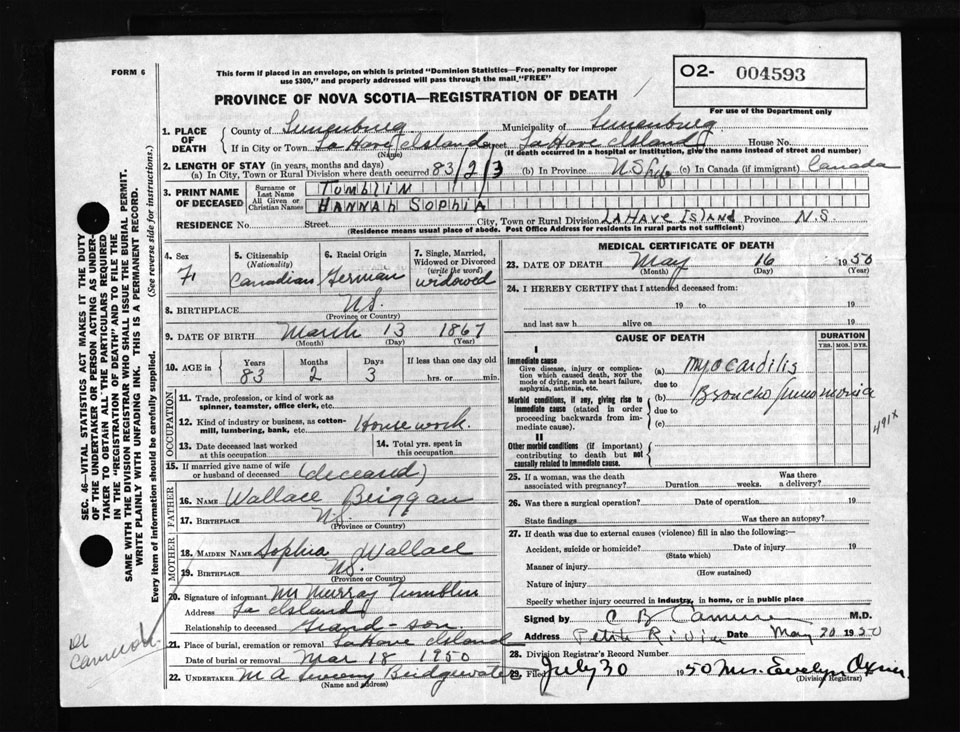 FORM 6
This form if placed in an envelope, on which is printed "Dominion Statistics—Free, penalty for improper
use $300," and properly addressed will pass through the mail "FREE"
O2- 004593
For use of the Department only
PROVINCE OF NOVA SCOTIA—REGISTRATION OF DEATH
1. PLACE OF DEATH County of Lunenburg Municipality of Lunenburg
If in City or Town La Have Island Street La Have Island House No.
(Name) (If death occurred in a hospital or institution, give the name instead of street and number)
2. LENGTH OF STAY (in years, months and days)
(a) In City, Town or Rural Division where death occurred 83/2/3 (b) In Province NS life (c) In Canada (if immigrant) Canada
3. PRINT NAME OF DECEASED
Surname or Last Name TUMBLIN
All Given or Christian Names HANNAH SOPHIA
RESIDENCE No. Street City, Town or Rural Division LAHAVE ISLAND Province N.S.
(Residence means usual place of abode. Post Office Address for residents in rural parts not sufficient)
4. Sex F
5. Citizenship (Nationality) Canadian
6. Racial Origin German
7. Single, Married, Widowed or Divorced (write the word) widowed
8. BIRTHPLACE NS.
(Province or Country)
9. DATE OF BIRTH March 13 1867
(Month) (Day) (Year)
10. AGE in Years Months Days If less than one day old
83 2 3 hrs. or min.
OCCUPATION
11. Trade, profession, or kind of work as spinner, teamster, office clerk, etc.
12. Kind of industry or business, as cotton-mill, lumbering, bank, etc. House work.
13. Date deceased last worked at this occupation
14. Total yrs. spent in this occupation
15. If married give name of wife or husband of deceased (deceased)
FATHER
16. NAME Wallace
17. BIRTHPLACE N.S.
(Province or Country)
MOTHER
18. MAIDEN NAME Sophia Wallace
19. BIRTHPLACE NS.
(Province or Country)
20. Signature of informant Mr Murray Tumblin
Address La Island
Relationship to deceased Grand-son.
21. Place of burial, cremation or removal LaHave Island
Date of burial or removal Mar 18 1950
22. UNDERTAKER M A Bridgewater
(Name and address)
MEDICAL CERTIFICATE OF DEATH
23. DATE OF DEATH May 16 1950
(Month) (Day) (Year)
24. I HEREBY CERTIFY that I attended deceased from:
19 to 19
and last saw h alive on 19
CAUSE OF DEATH
DURATION
YRS. MOS. DYS.
I
Immediate cause
Give disease, injury or complication which caused death, not the mode of dying, such as heart failure, asphyxia, asthenia, etc.
(a) Myocardilis
due to
Morbid conditions, if any, giving rise to immediate cause (stated in order proceeding backwards from immediate cause).
(b) Broncho pneumonia
due to
(c)
491X
II
Other morbid conditions (if important) contributing to death but not causally related to immediate cause.
25. If a woman, was the death associated with pregnancy? Duration weeks. Was there a delivery?
26. Was there a surgical operation? Date of operation 19
State findings Was there an autopsy?
27. If death was due to external causes (violence) fill in also the following:—
Accident, suicide or homicide? Date of injury 19
(State which)
Manner of injury
(How sustained)
Nature of injury
Specify whether injury occurred in industry, in home, or in public place
Signed by C B Cameron M.D.
Address Petite Riviere Date May 20 1950
28. Division Registrar's Record Number
29. Filed July 30 1950 Mrs. Evelyn Oxner
(Division Registrar)
SEC. 46—VITAL STATISTICS ACT MAKES IT THE DUTY
OF THE UNDERTAKER OR PERSON ACTING AS UNDER-
TAKER TO OBTAIN ALL THE PARTICULARS REQUIRED
IN THE "REGISTRATION OF DEATH" AND TO FILE THE
SAME WITH THE DIVISION REGISTRAR WHO SHALL ISSUE THE BURIAL PERMIT.
WRITE PLAINLY WITH UNFADING INK. THIS IS A PERMANENT RECORD.
Every item of information should be carefully supplied. (See reverse side for instructions.)
Dr
Cameron